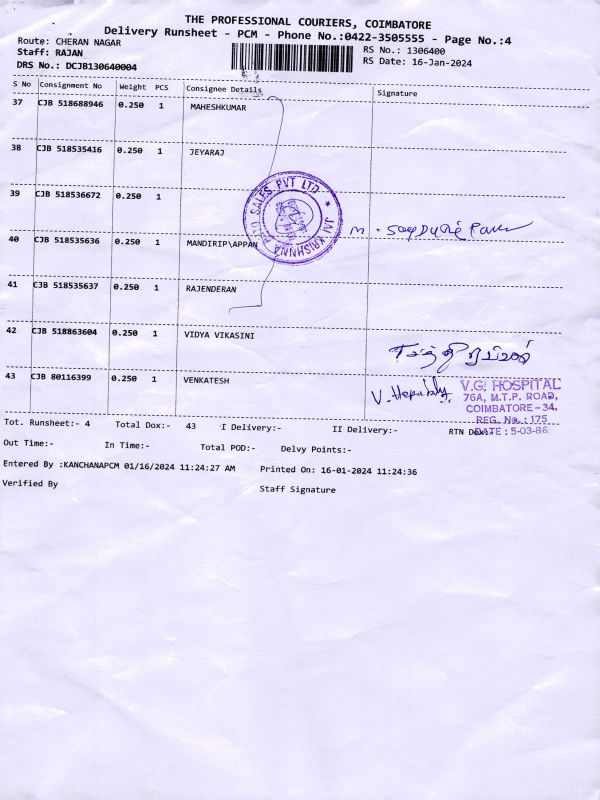 THE PROFESSIONAL COURIERS, COIMBATORE
Delivery Runsheet - PCM - Phone No.:0422-3505555 - Page No.:4
Route: CHERAN NAGAR RS No.: 1306400
Staff: RAJAN RS Date: 16-Jan-2024
DRS No.: DCJB130640004
S No Consignment No Weight PCS Consignee Details Signature
37 CJB 518688946 0.250 1 MAHESHKUMAR
38 CJB 518535416 0.250 1 JEYARAJ
39 CJB 518536672 0.250 1
JAI KRISHNNA AUTO SALES PVT LTD ★
40 CJB 518535636 0.250 1 MANDIRIP\APPAN
41 CJB 518535637 0.250 1 RAJENDERAN
42 CJB 518863604 0.250 1 VIDYA VIKASINI
43 CJB 80116399 0.250 1 VENKATESH
V.G. HOSPITAL
76A, M.T.P. ROAD,
COIMBATORE - 34.
REG. No.: 175
DATE : 5-03-86
Tot. Runsheet:- 4 Total Dox:- 43 I Delivery:- II Delivery:- RTN Dox:-
Out Time:- In Time:- Total POD:- Delvy Points:-
Entered By :KANCHANAPCM 01/16/2024 11:24:27 AM Printed On: 16-01-2024 11:24:36
Verified By Staff Signature